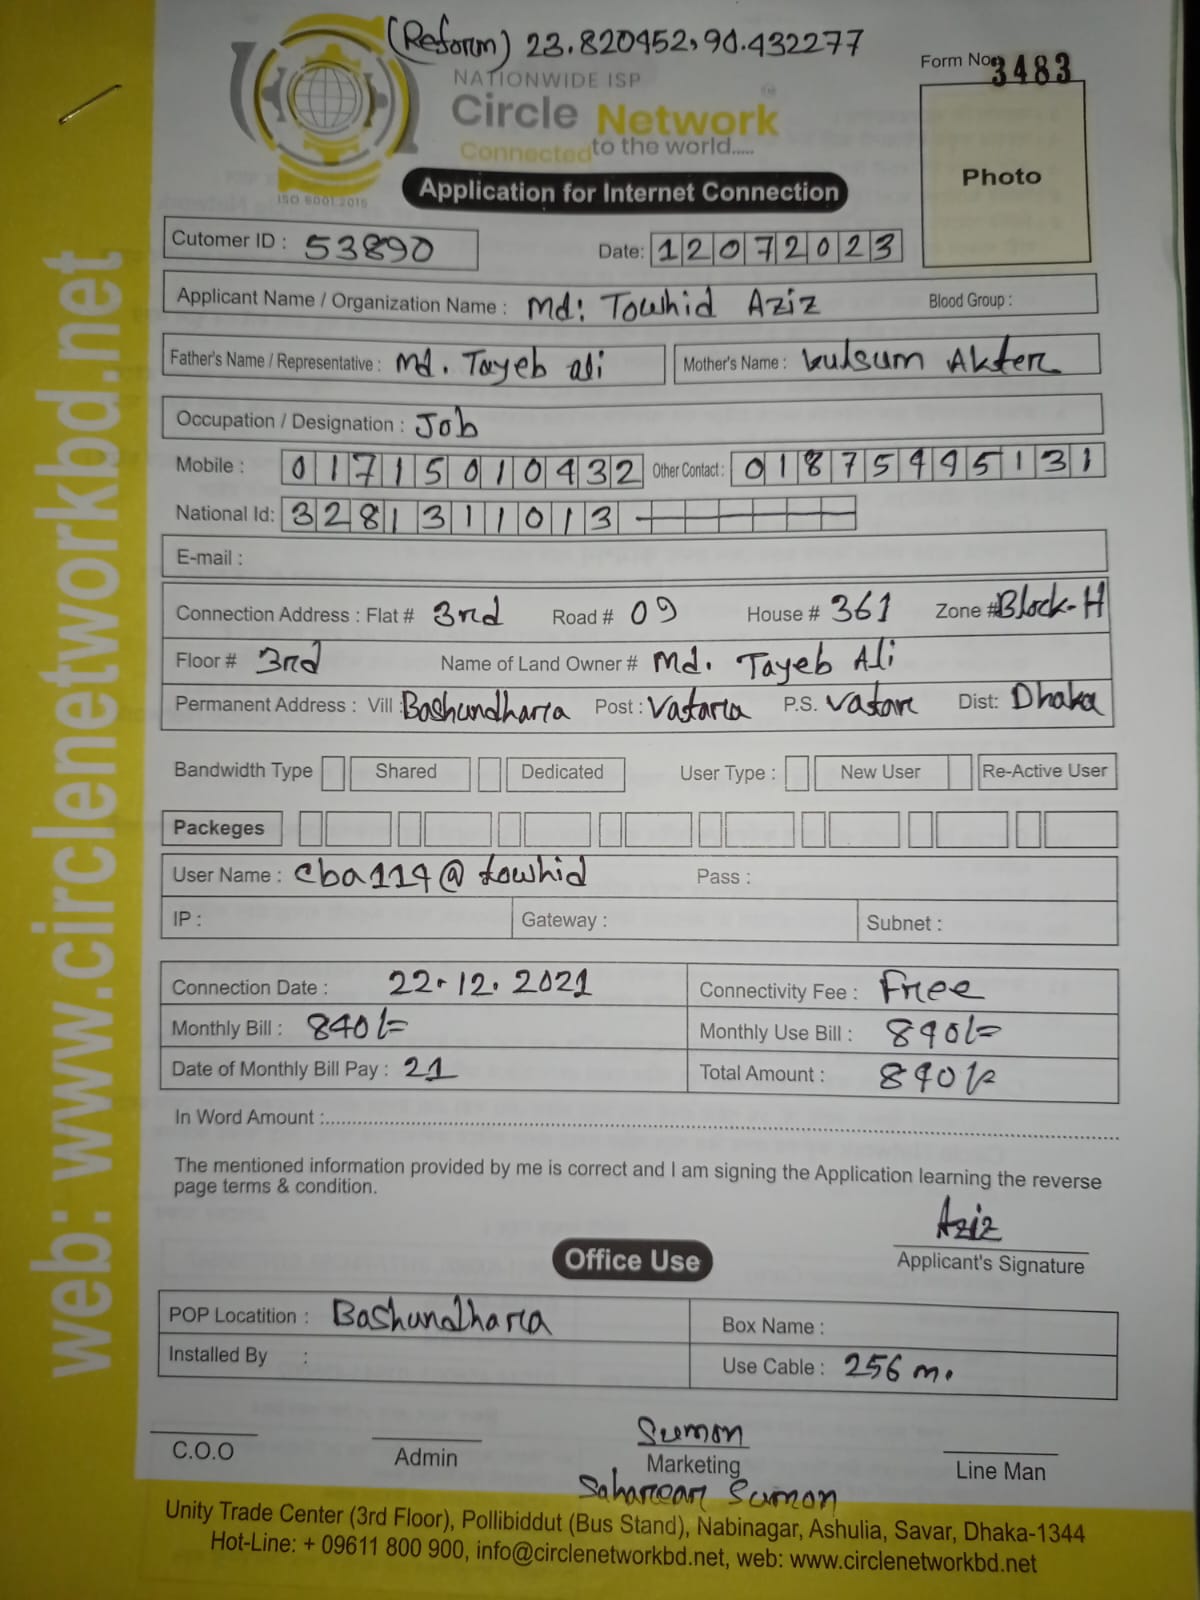 (Reform) 23.820452, 90.432277
Form No. 3483
NATIONWIDE ISP
Circle Network
Connected to the world.....
ISO 9001:2015
Photo
Application for Internet Connection
Cutomer ID : 53890 Date: 12072023
Applicant Name / Organization Name : Md: Towhid Aziz Blood Group :
Father's Name / Representative : Md. Tayeb Ali Mother's Name : kulsum Akter
Occupation / Designation : Job
Mobile : 01715010432 Other Contact : 01875995131
National Id: 3281311013
E-mail :
Connection Address : Flat # 3rd Road # 09 House # 361 Zone # Block-H
Floor # 3rd Name of Land Owner # Md. Tayeb Ali
Permanent Address : Vill : Bashundhara Post : Vatara P.S. Vatara Dist: Dhaka
Bandwidth Type Shared Dedicated User Type : New User Re-Active User
Packeges
User Name : cba114@towhid Pass :
IP : Gateway : Subnet :
Connection Date : 22.12.2021 Connectivity Fee : Free
Monthly Bill : 840/= Monthly Use Bill : 840/=
Date of Monthly Bill Pay : 21 Total Amount : 840/=
In Word Amount :
The mentioned information provided by me is correct and I am signing the Application learning the reverse
page terms & condition.
Aziz
Applicant's Signature
Office Use
POP Locatition : Bashundhara Box Name :
Installed By : Use Cable : 256 m.
Sumon
C.O.O Admin Marketing Line Man
Saharear Sumon
Unity Trade Center (3rd Floor), Pollibiddut (Bus Stand), Nabinagar, Ashulia, Savar, Dhaka-1344
Hot-Line: + 09611 800 900, info@circlenetworkbd.net, web: www.circlenetworkbd.net
web: www.circlenetworkbd.net